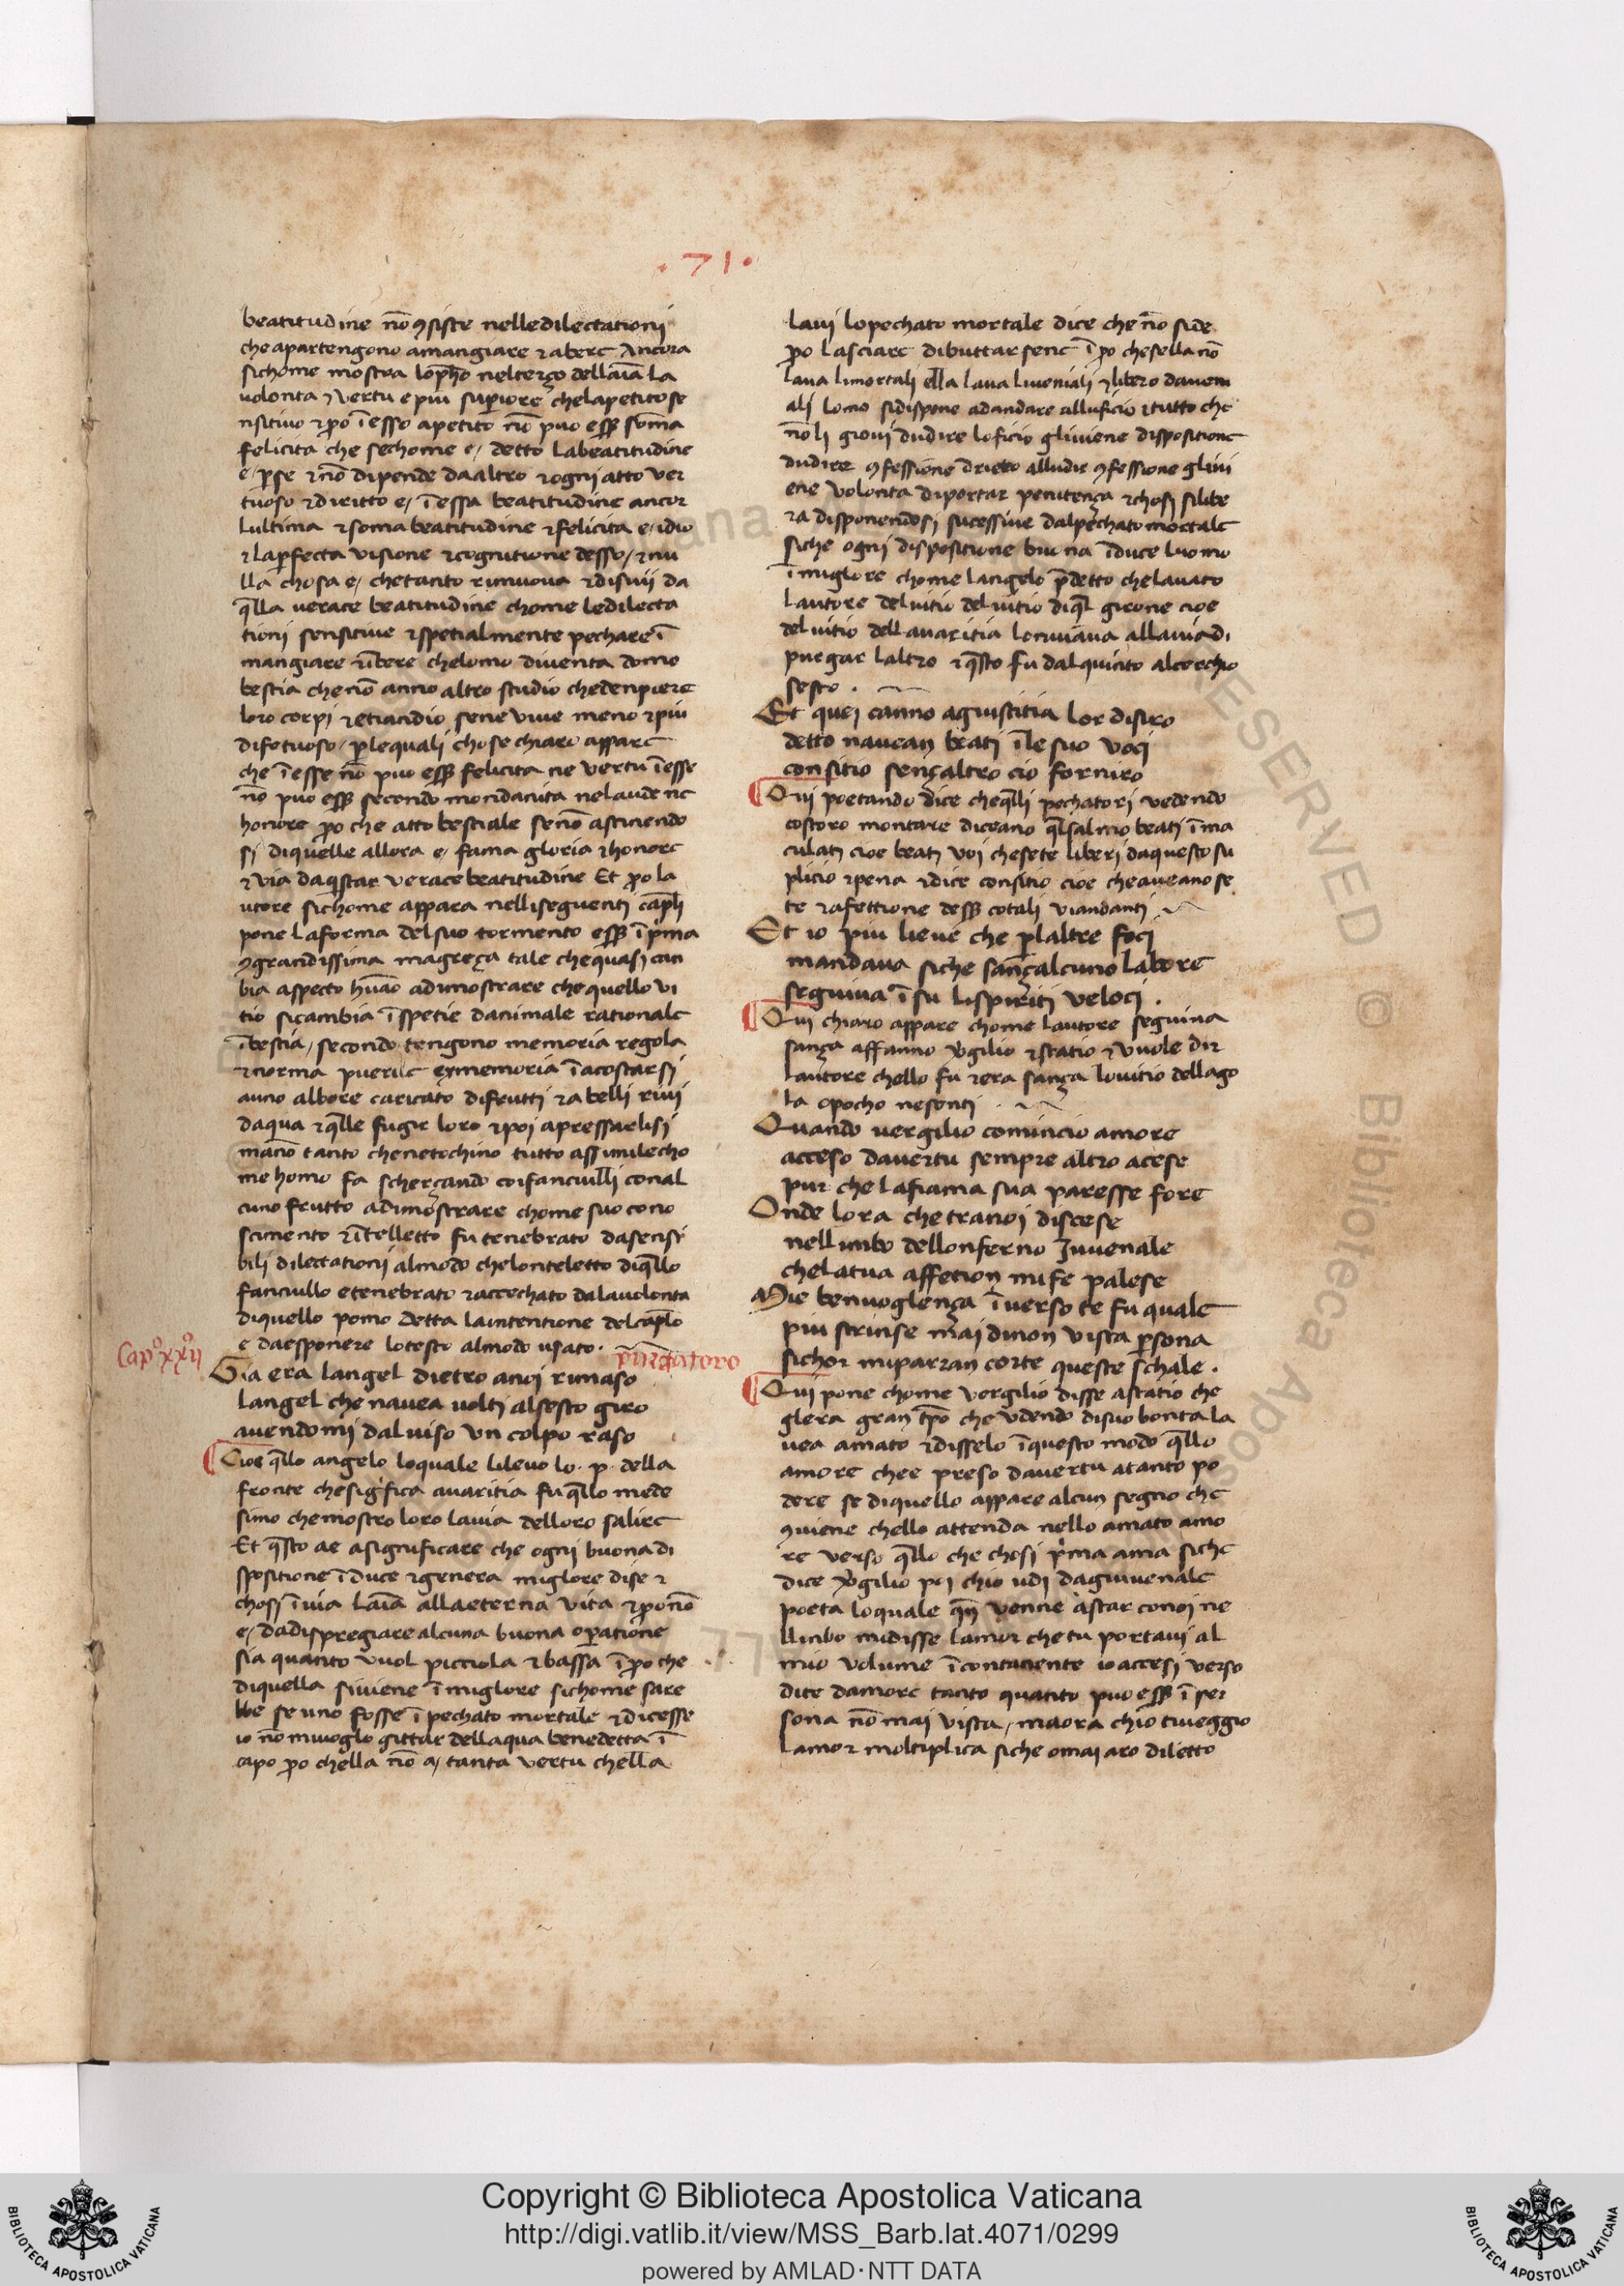 . 71 .
beatitudine nō ꝯsiste nelle dilectationi
che apartengono amangiare ⁊ abere Ancora
sichome mostra lopħo nelterço dellaīa la
volonta ⁊ vertu e piu supiore chelapetito se
nsitivo ⁊ ꝑo ī esso apetito nō puo eẜẜ som̄a
felicita che sechome e/ detto labeatitudine
e/ ꝑse ⁊ nō dipende da altro ⁊ ogni atto ver
tuoso ⁊ diritto e/ ī essa beatitudine ancor
lultima ⁊ soma beatitudine ⁊ felicita e/ idio
⁊ laꝑfecta visione ⁊ cognitione desso/ ⁊ nu
lla chosa e/ chetanto rimuova ⁊ disvii da
q̄lla verace beatitudine chome ledilecta
tioni sensitive ⁊ spetialmente pechare ī
mangiare ⁊ ībere chelomo diventa domo
bestia chenō anno altro studio chedenpiere
loro corpi ⁊ etiandio sene vive meno ⁊ piu
difetuoso/ ꝑlequali chose chiaro appare
che ī esse nō puo eẜẜ felicita ne vertu ī esse
nō puo eẜẜ secondo mondanita nelaude ne
honore ꝑo che atto bestiale senō astinendo
si diquelle allora e/ fama gloria ⁊ honore
⁊ via daq̄star verace beatitudine Et ꝑo la
utore sichome appara nelliseguenti capl̄i
pone laforma delsuo tormento eẜẜ ī pͥma
ꝯgrandissima magreça tale chequasi can
bia aspecto hūao adimostrare che quello vi
tio sicambia ī spetie danimale rationale
ī bestia/ secondo tengono memoria regola
⁊ norma puerile ⁊ memoria ī acostarsi
auno albore caricato difrutti ⁊ a belli rivi
daqua ⁊ q̄lle fugir loro ⁊ poi apressarlisi
māno tanto chenetochino tutto assimilecho
me homo fa scherçando coifanciulli conal
cuno frutto adimostrare chome suo cono
scimento ⁊ ītelletto fu tenebrato dasensi
bili dilectationi almodo chelonteletto diq̄llo
fanciullo etenebrato ⁊ accechato dalavolonta
diquello pomo Detta laintentione delcapl̄o
e daesponere lotesto almodo usato .
Capº xxiiº
purgatoro
Gia era langel dietro anoi rimaso
langel che navea volti alsesto giro
avendomi dal viso un colpo raso
Cioe q̄llo angelo loquale lilevo lo . p . della
fronte chesigͥfica avaritia fu q̄llo mede
simo chemostro loro lavia delloro salire
Et q̄sto ae asignificare che ogni buona di
spositione īduce ⁊ genera miglore dise ⁊
chosi īvia laīa allaeterna vita ⁊ ꝑo nō
e/ dadispregiare alcuna buona oꝑatione
sia quanto vuol picciola ⁊ bassa īꝑo che
diquella siviene ī miglore sichome sare
bbe se uno fosse ī pechato mortale ⁊ dicesse
io nō mivoglo gittar dellaqua benedetta ī
capo ꝑo chella nō a/ tanta vertu chella
lavi lopechato mortale dice che nō side
ꝑo lasciare dibuttarsene īꝑo chesella nō
lava limortali ella lava liveniali ⁊ libero daveni
ali lomo sidispone adandare alluficio ⁊ tutto che
nō li giovi dudire loficio gliviene dispositione
dudire ꝯfessione drieto alludir ꝯfessione glivi
ene volonta diportar penitença ⁊ chosi silibe
ra disponendosi sucessive dalpechato mortale
siche ogni dispositione buona īduce luomo
ī miglore chome langelo p̄detto chelavato
lautore delvitio delvitio diq̄l girone cioe
delvitio dell avaritia lonviava allavia di
purgar laltro ⁊ q̄sto fu dalquinto alcerchio
sesto .
Et quei cānno agiustitia lor disiro
detto navean beati īle suo voci
consitio sençaltro cio forniro
Qui poetando dice cheq̄lli pechatori vedendo
costoro montare diceano q̄lsalmo beati īma
culati cioe beati voi chesete liberi daquesto su
plicio ⁊ pena ⁊ dice consitio cioe che aveano se
te ⁊ afettione deẜẜ cotali viandanti
Et io piu lieve che ꝑlaltre foci
mandava siche sançalcuno labore
seguiva ī su lispiriti veloci .
Qui chiaro appare chome lautore seguiva
sança affanno v̄gilio ⁊ statio ⁊ vuole dir
lautore chello fu ⁊ era sança lovitio dellago
la opocho nesenti
Quando vergilio comincio amore
acceso davertu sempre altro acese
pur che lafiama sua paresse fore
Onde lora che tranoi discese
nellinbo dellonferno Juvenale
chelatua affetion mife palese
Mie benvoglença īverso te fu quale
piu strinse mai dinon vista ꝑsona
sichor miparran corte queste schale .
Qui pone chome vergilio disse astatio che
glera gran tp̄o che udendo disuo bonta la
vea amato ⁊ disselo īquesto modo q̄llo
amore chee preso davertu atanto po
dere se diquello appare alcun segno che
ꝯviene chello attenda nello amato amo
re verso q̄llo che chosi pͥma ama siche
dice v̄gilio poi chio udi dagiuvenale
poeta loquale qn̄ venne astar conoi ne
llinbo midisse lamor chetu portavi al
mio volume īcontanente io accesi verso
dite damore tanto quanto puo eẜẜ ī ꝑr
sona nō mai vista/ maora chio tiveggio
lamor moltiplica siche omai aro diletto
Copyright © Biblioteca Apostolica Vaticana
http://digi.vatlib.it/view/MSS_Barb.lat.4071/0299
powered by AMLAD·NTT DATA
BIBLIOTECA APOSTOLICA VATICANA
BIBLIOTECA APOSTOLICA VATICANA